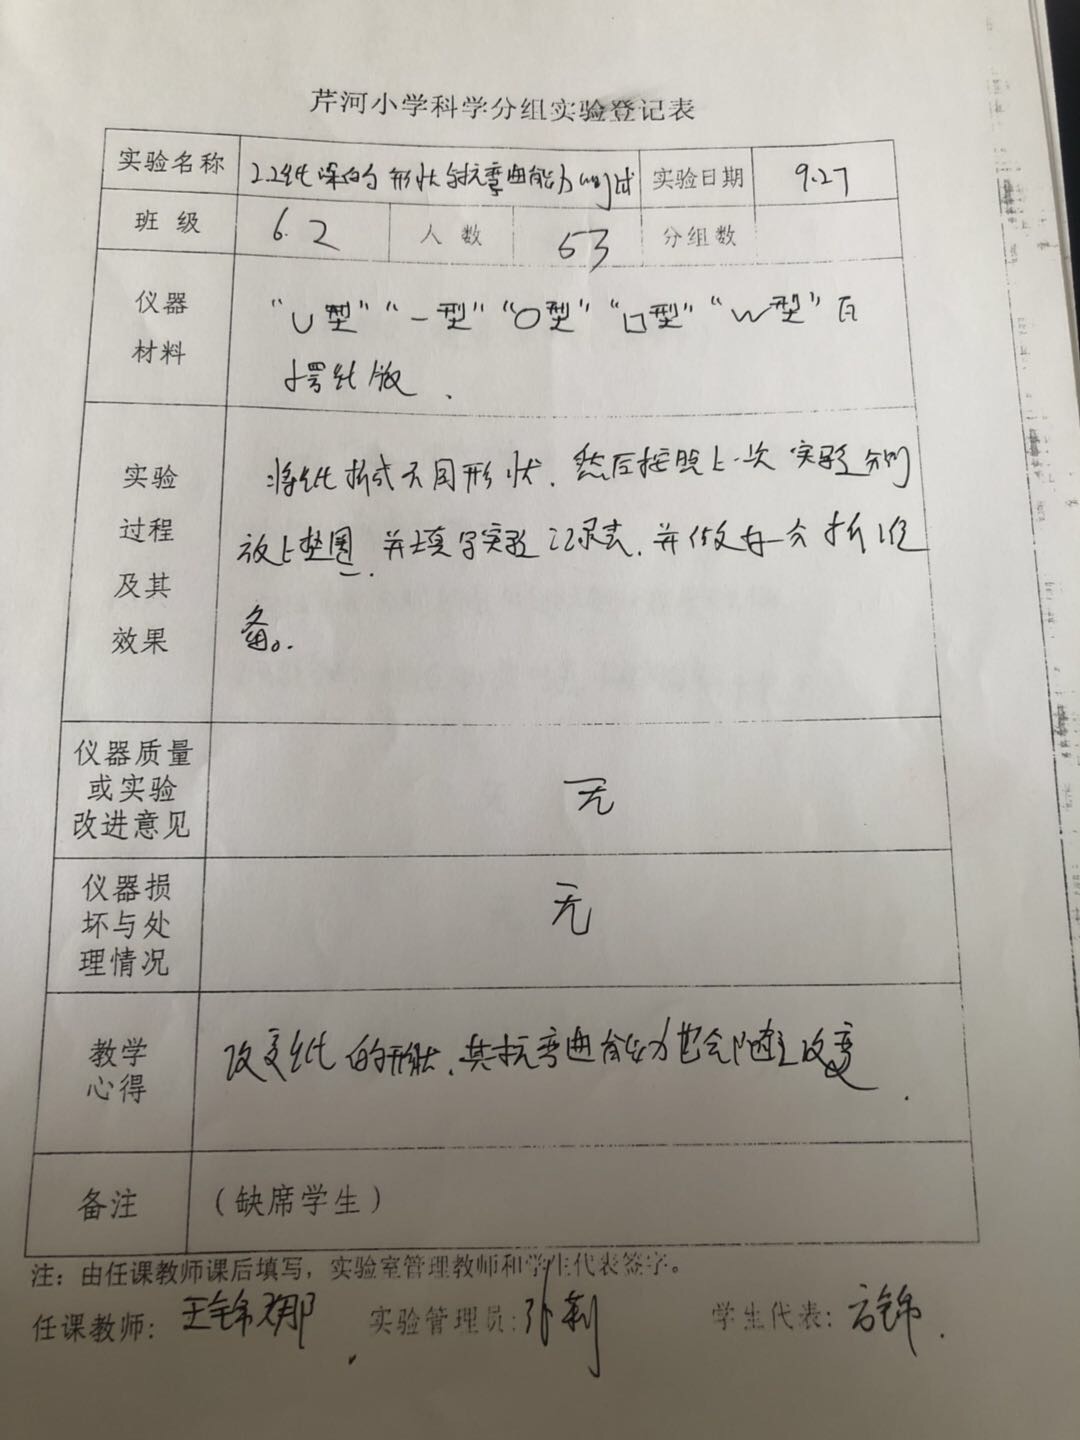 芹河小学科学分组实验登记表
实验名称 2.2纸梁的形状与抗弯曲能力测试 实验日期 9.27
班级 6.2 人数 53 分组数
仪器材料 “U型”“一型”“O型”“口型”“W型”瓦
楞纸板.
实验过程及其效果 将纸折成不同形状.然后按照上一次实验分别
放上垫圈.并填写实验记录表.并做好分析准
备。
仪器质量或实验改进意见 无
仪器损坏与处理情况 无
教学心得 改变纸的形状.其抗弯曲能力也会随之改变.
备注 (缺席学生)
注：由任课教师课后填写，实验室管理教师和学生代表签字。
任课教师: 王锦娜 实验管理员: 学生代表: 方锦.